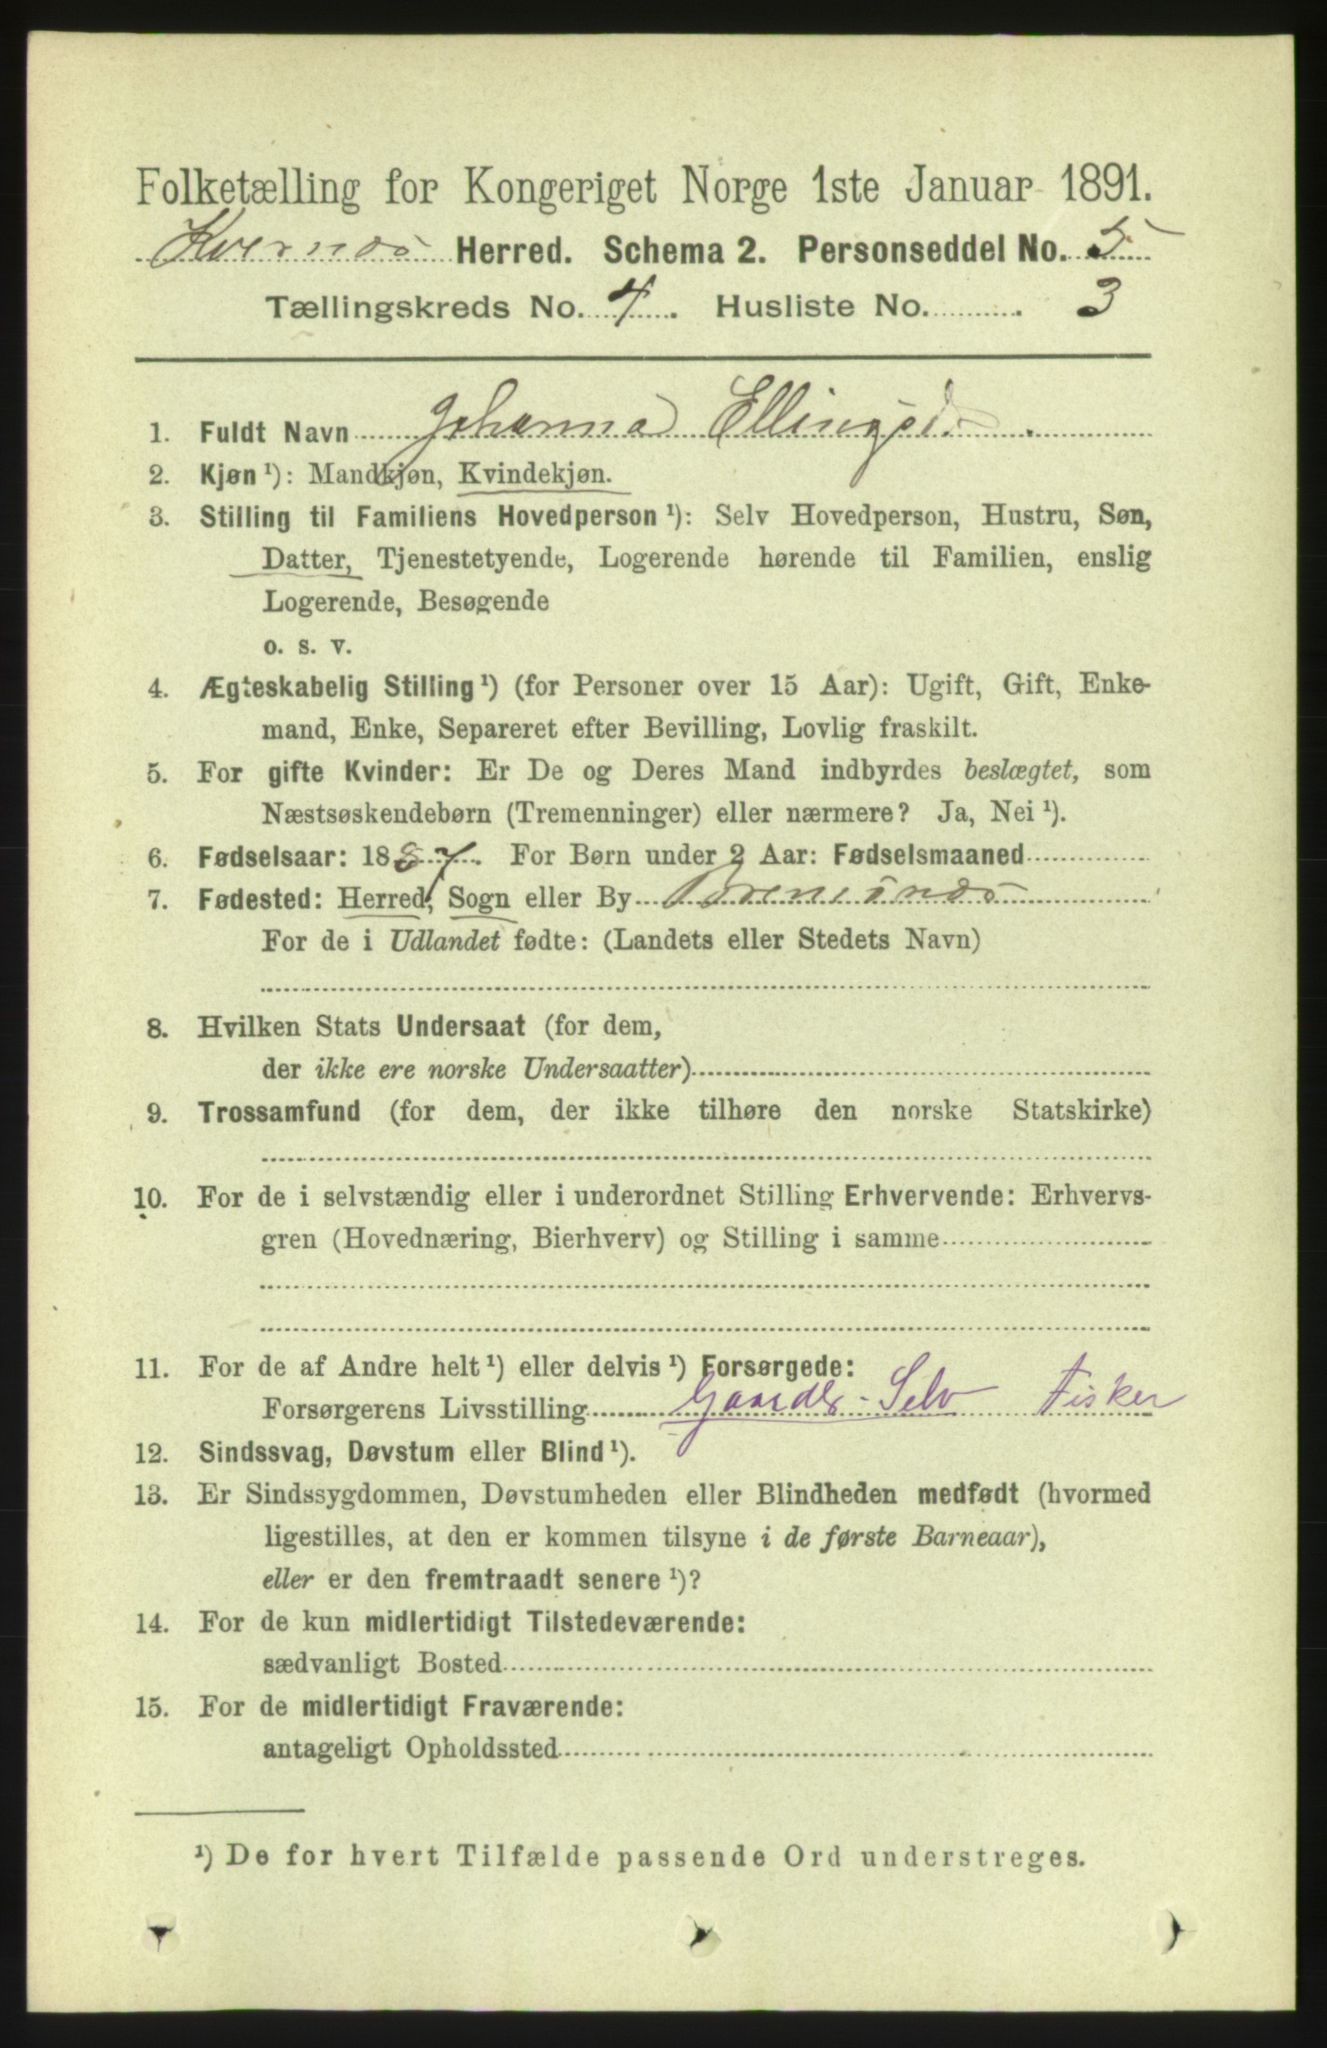 Folketælling for Kongeriget Norge 1ste Januar 1891.
Kvernæs Herred. Schema 2. Personseddel No. 5
Tællingskreds No. 4. Husliste No. 3
1. Fuldt Navn Johanna Ellingsd.
2. Kjøn ¹): Mandkjøn, Kvindekjøn.
3. Stilling til Familiens Hovedperson ¹): Selv Hovedperson, Hustru, Søn,
Datter, Tjenestetyende, Logerende hørende til Familien, enslig
Logerende, Besøgende
o. s. v.
4. Ægteskabelig Stilling ¹) (for Personer over 15 Aar): Ugift, Gift, Enke-
mand, Enke, Separeret efter Bevilling, Lovlig fraskilt.
5. For gifte Kvinder: Er De og Deres Mand indbyrdes beslægtet, som
Næstsøskendebørn (Tremenninger) eller nærmere? Ja, Nei ¹).
6. Fødselsaar: 1887. For Børn under 2 Aar: Fødselsmaaned
7. Fødested: Herred, Sogn eller By Bremsnæs
For de i Udlandet fødte: (Landets eller Stedets Navn)
8. Hvilken Stats Undersaat (for dem,
der ikke ere norske Undersaatter)
9. Trossamfund (for dem, der ikke tilhøre den norske Statskirke)
10. For de i selvstændig eller i underordnet Stilling Erhvervende: Erhvervs-
gren (Hovednæring, Bierhverv) og Stilling i samme
11. For de af Andre helt ¹) eller delvis ¹) Forsørgede:
Forsørgerens Livsstilling Gaardbr. Selv Fisker
12. Sindssvag, Døvstum eller Blind ¹).
13. Er Sindssygdommen, Døvstumheden eller Blindheden medfødt (hvormed
ligestilles, at den er kommen tilsyne i de første Barneaar),
eller er den fremtraadt senere ¹)?
14. For de kun midlertidigt Tilstedeværende:
sædvanligt Bosted
15. For de midlertidigt Fraværende:
antageligt Opholdssted
¹) De for hvert Tilfælde passende Ord understreges.